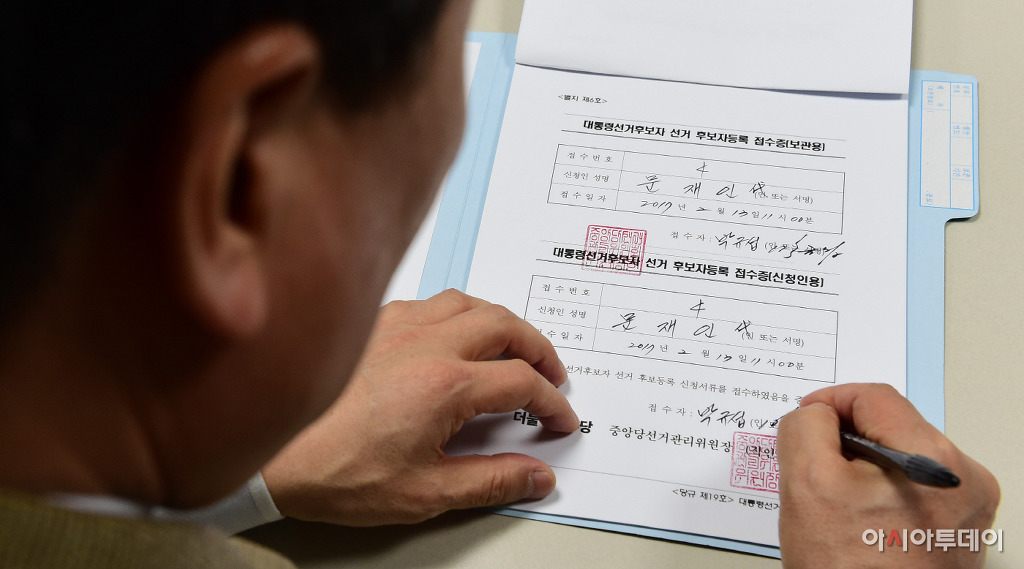 <별지 제6호>
대통령선거후보자 선거 후보자등록 접수증(보관용)
접 수 번 호 4
신청인 성명 문 재 인 (인 또는 서명)
접 수 일 자 2017 년 2 월 13 일 11 시 00 분
접 수 자 : 박규섭
대통령선거후보자 선거 후보자등록 접수증(신청인용)
접 수 번 호 4
신청인 성명 문 재 인 (인 또는 서명)
수 일 자 2017 년 2 월 13 일 11 시 00 분
선거후보자 선거 후보등록 신청서류를 접수하였음을
접 수 자 : 박규섭
더불 당 중앙당선거관리위원장 (직인
<당규 제19호> 대통령선거
아시아투데이